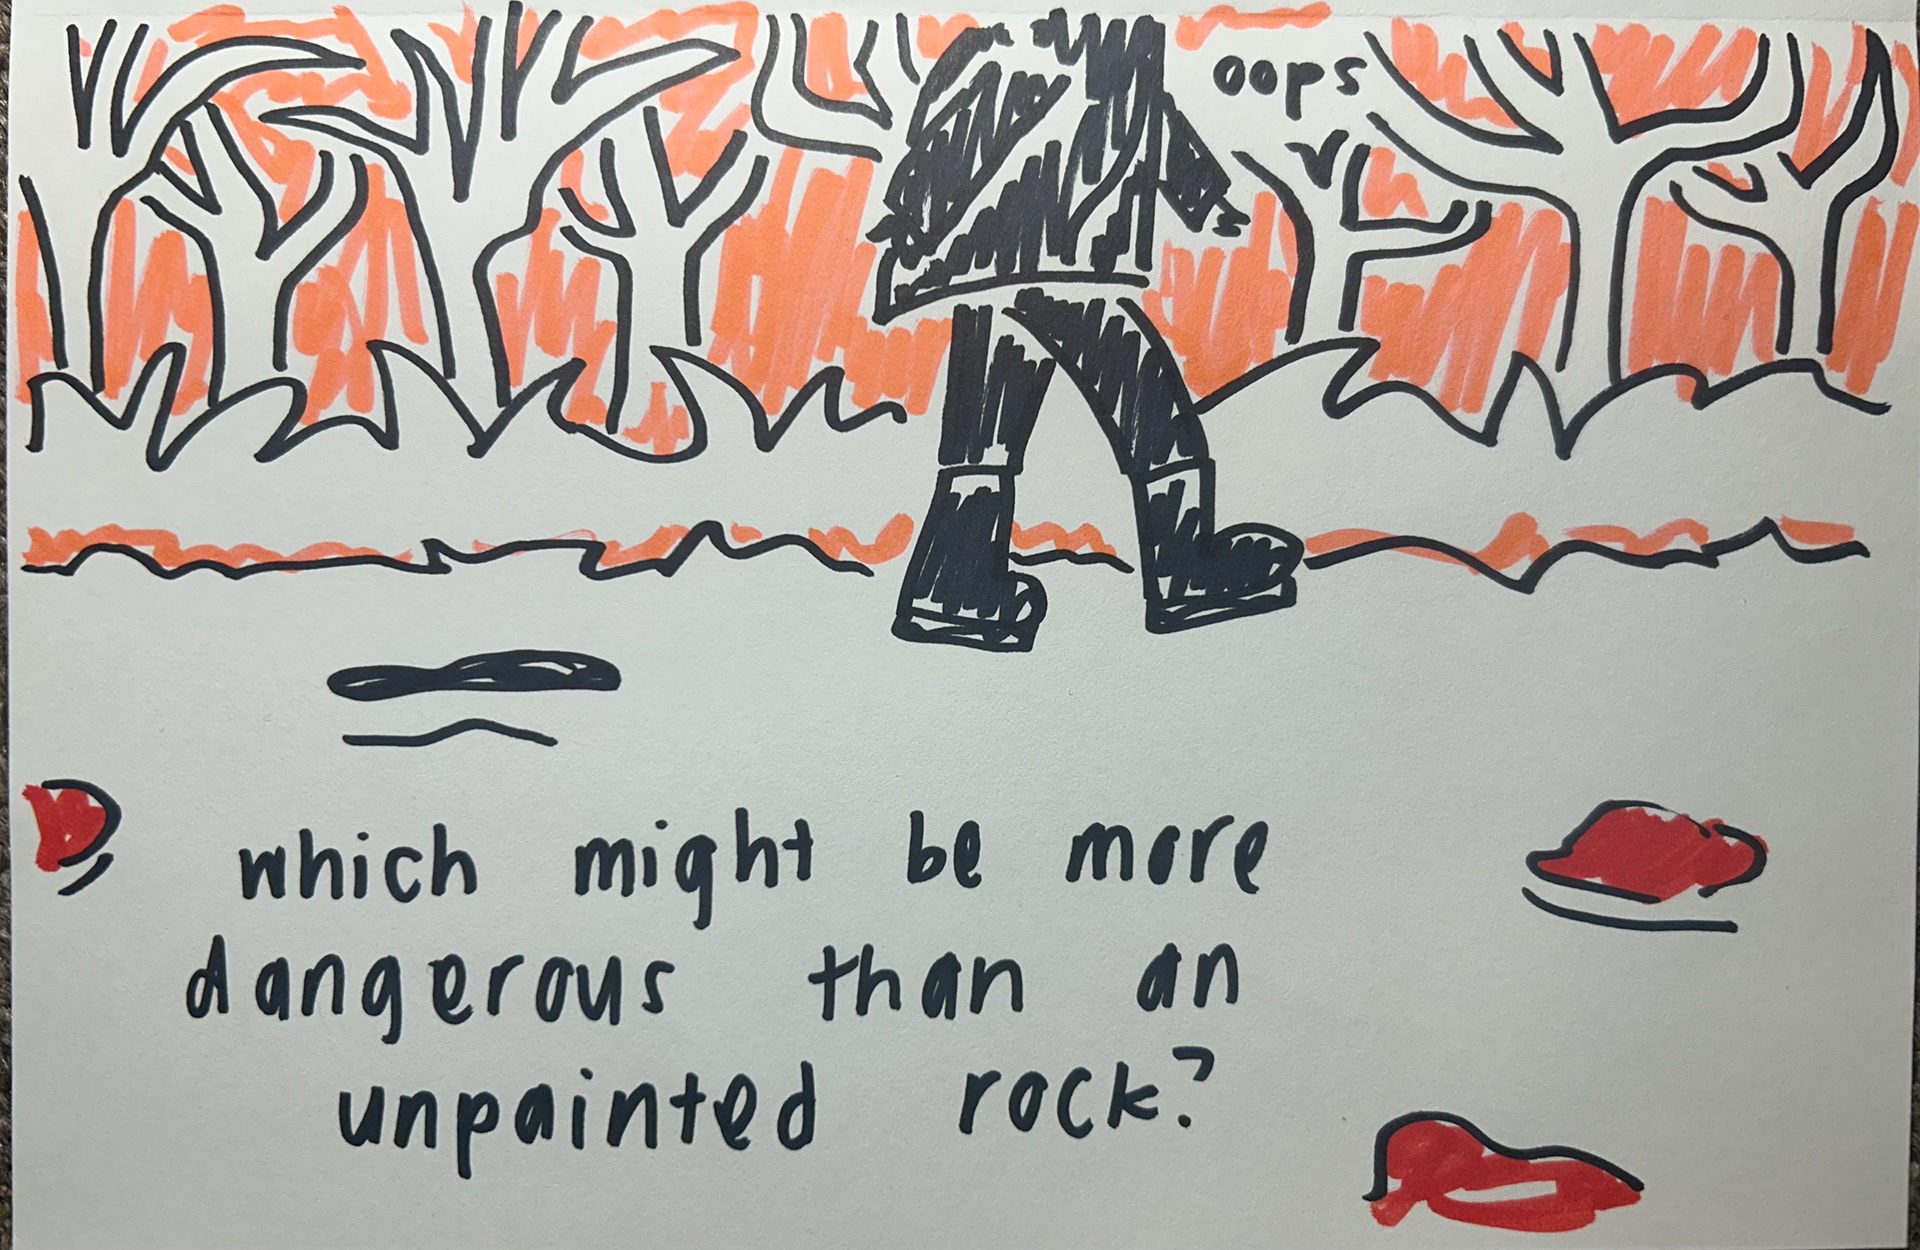 oops
which might be more
dangerous than an
unpainted rock?